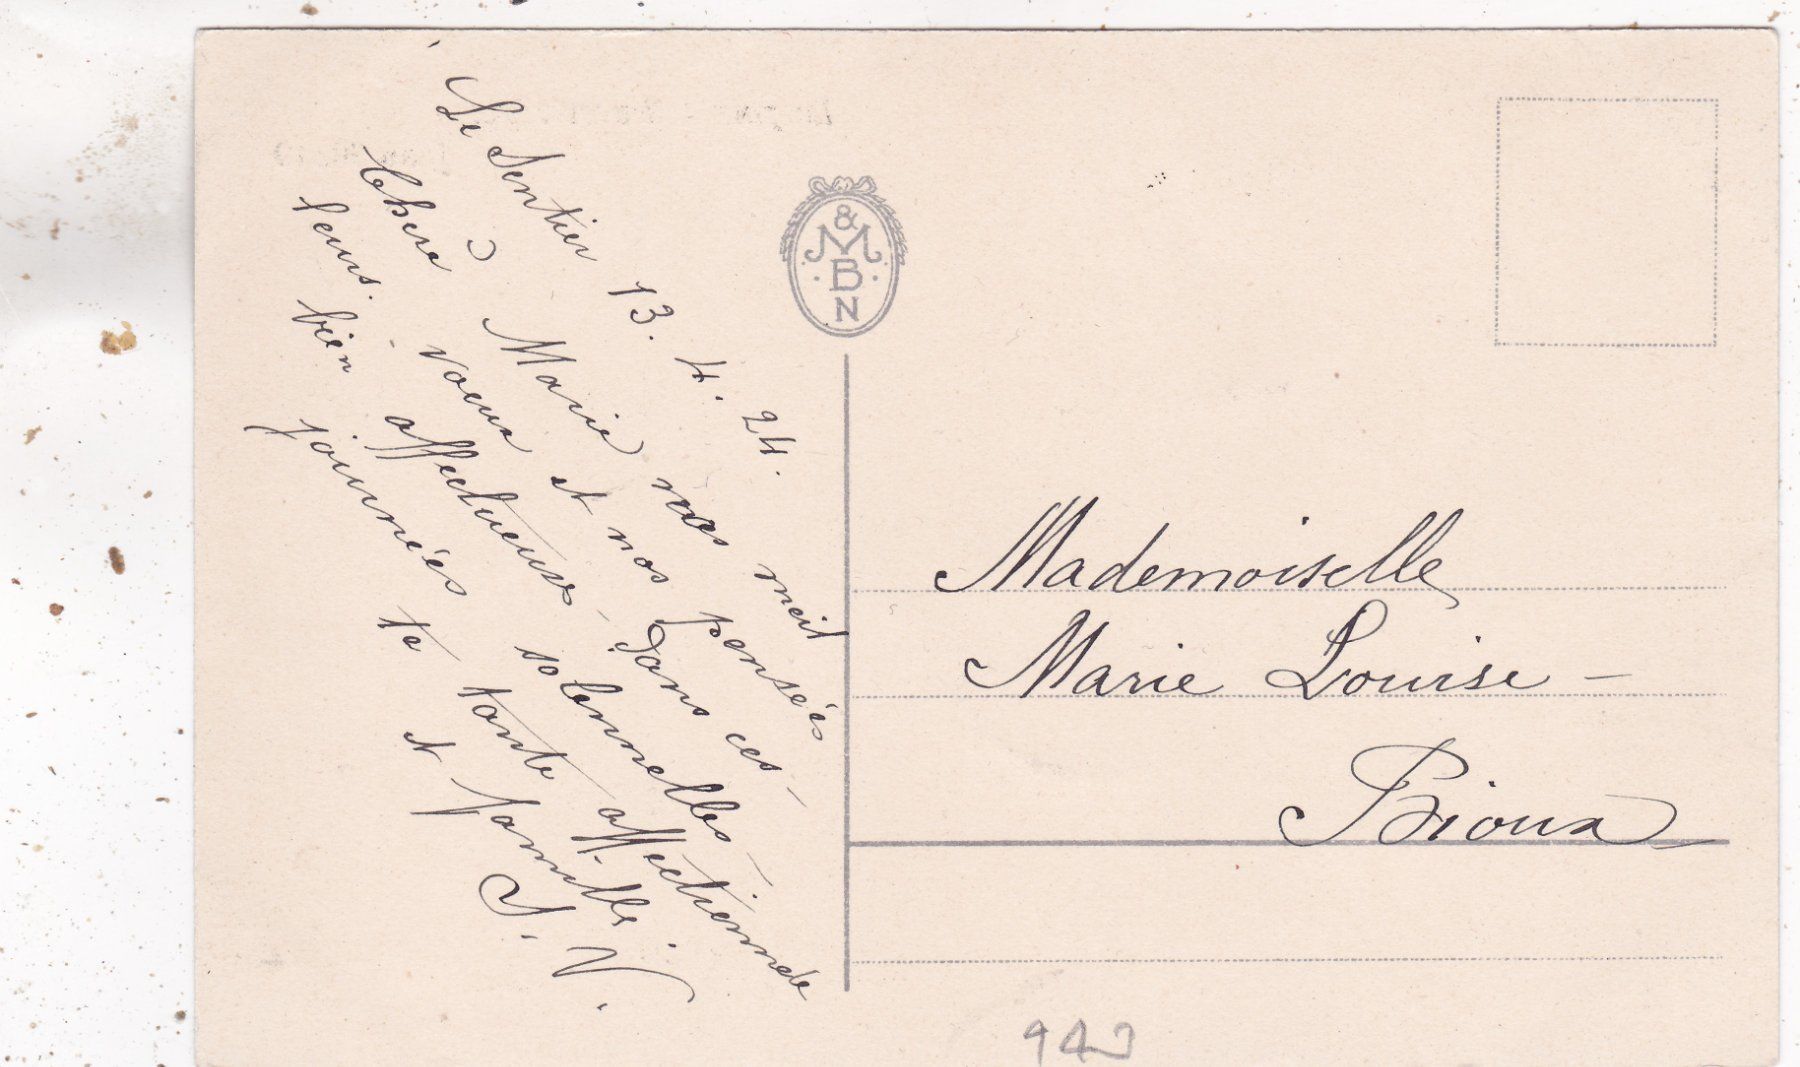 Le Sentier 13. 4. 24.
Chère Marie nos meil
leurs - voeux et nos pensées
bien affectueuses - dans ces -
journées solennelles -
ta tante affectionnée
et famille.
S. V.
& M B N
Mademoiselle
Marie Louise -
Bioux
943